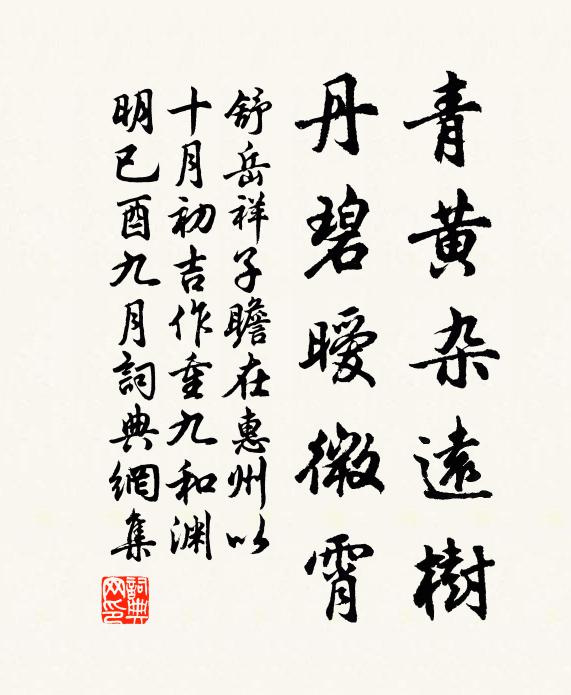 青黄杂遠樹
丹碧曖微霄
舒岳祥子瞻在惠州以
十月初吉作重九和渊
明已酉九月詞典網集
詞典网印